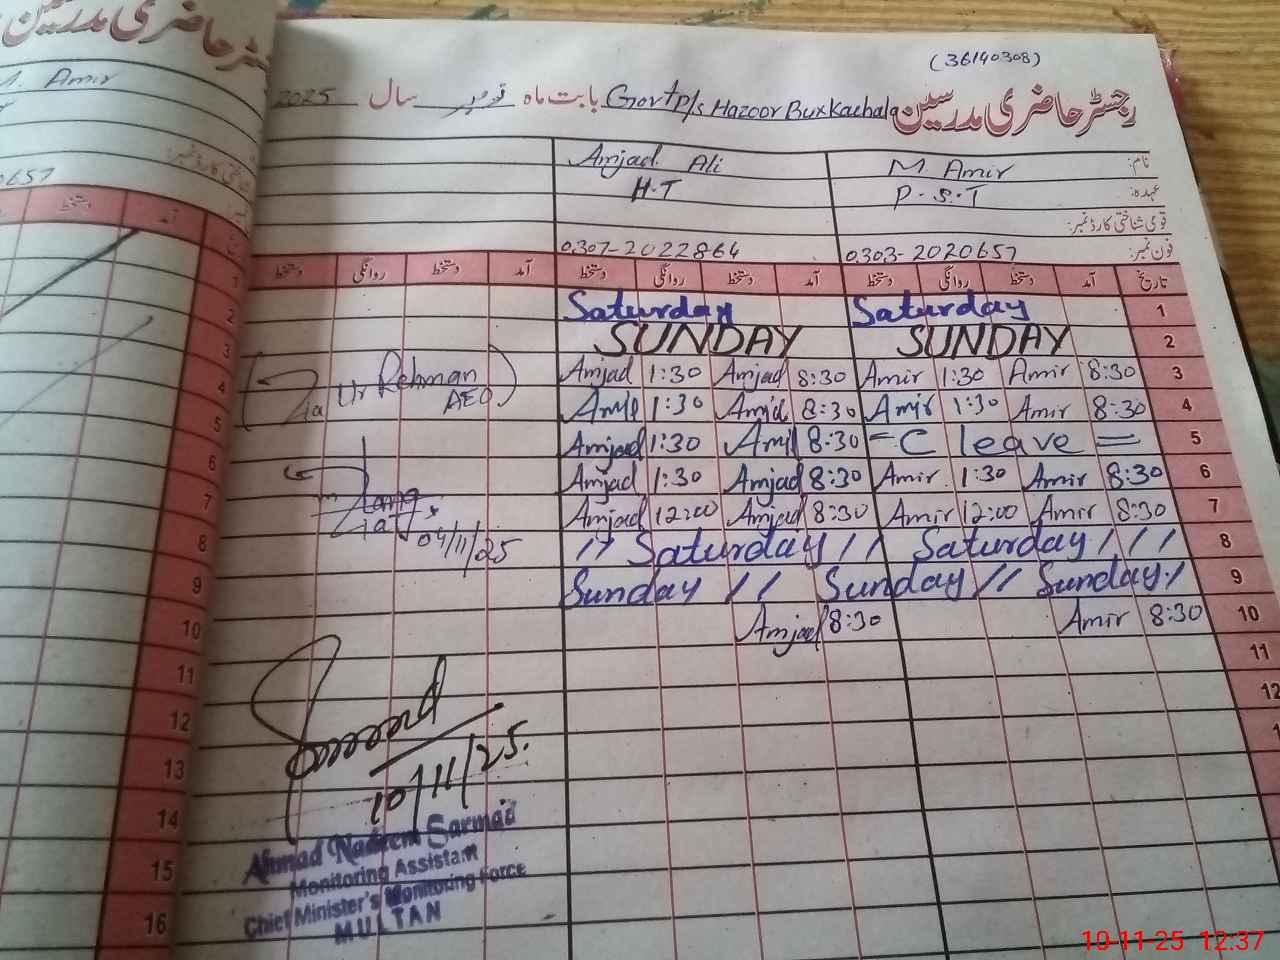 (36140308)
رجسٹر حاضری مدرسین Govt P/s Hazoor Bux Kachala بابت ماہ نومبر سال 2025
نام: M. Amir Amjad Ali
عہدہ: P.S.T H.T
قومی شناختی کارڈ نمبر:
فون نمبر: 0303-2020657 0307-2022864
تاریخ آمد دستخط روانگی دستخط آمد دستخط روانگی دستخط آمد دستخط روانگی دستخط
Saturday Saturday 1
SUNDAY SUNDAY 2
Amjad 1:30 Amjad 8:30 Amir 1:30 Amir 8:30 3
Amjd 1:30 Amjd 8:30 Amir 1:30 Amir 8:30 4
Amjad 1:30 Amjd 8:30 - C leave = 5
Amjad 1:30 Amjad 8:30 Amir 1:30 Amir 8:30 6
Amjad 12:00 Amjad 8:30 Amir 12:00 Amir 8:30 7
// Saturday // Saturday /// 8
Sunday // Sunday // Sunday / 9
Amjad 8:30 Amir 8:30 10
11
12
1
(Zia Ur Rehman
AEO)
04/11/25
10/11/25.
Ahmad Nadeem Sarmad
Monitoring Assistant
Chief Minister's Monitoring Force
MULTAN
رجسٹر حاضری مدرسین
M. Amir
0657
آمد دستخط
1
2
3
4
5
6
7
8
9
10
11
12
13
14
15
16
10-11-25 12:37